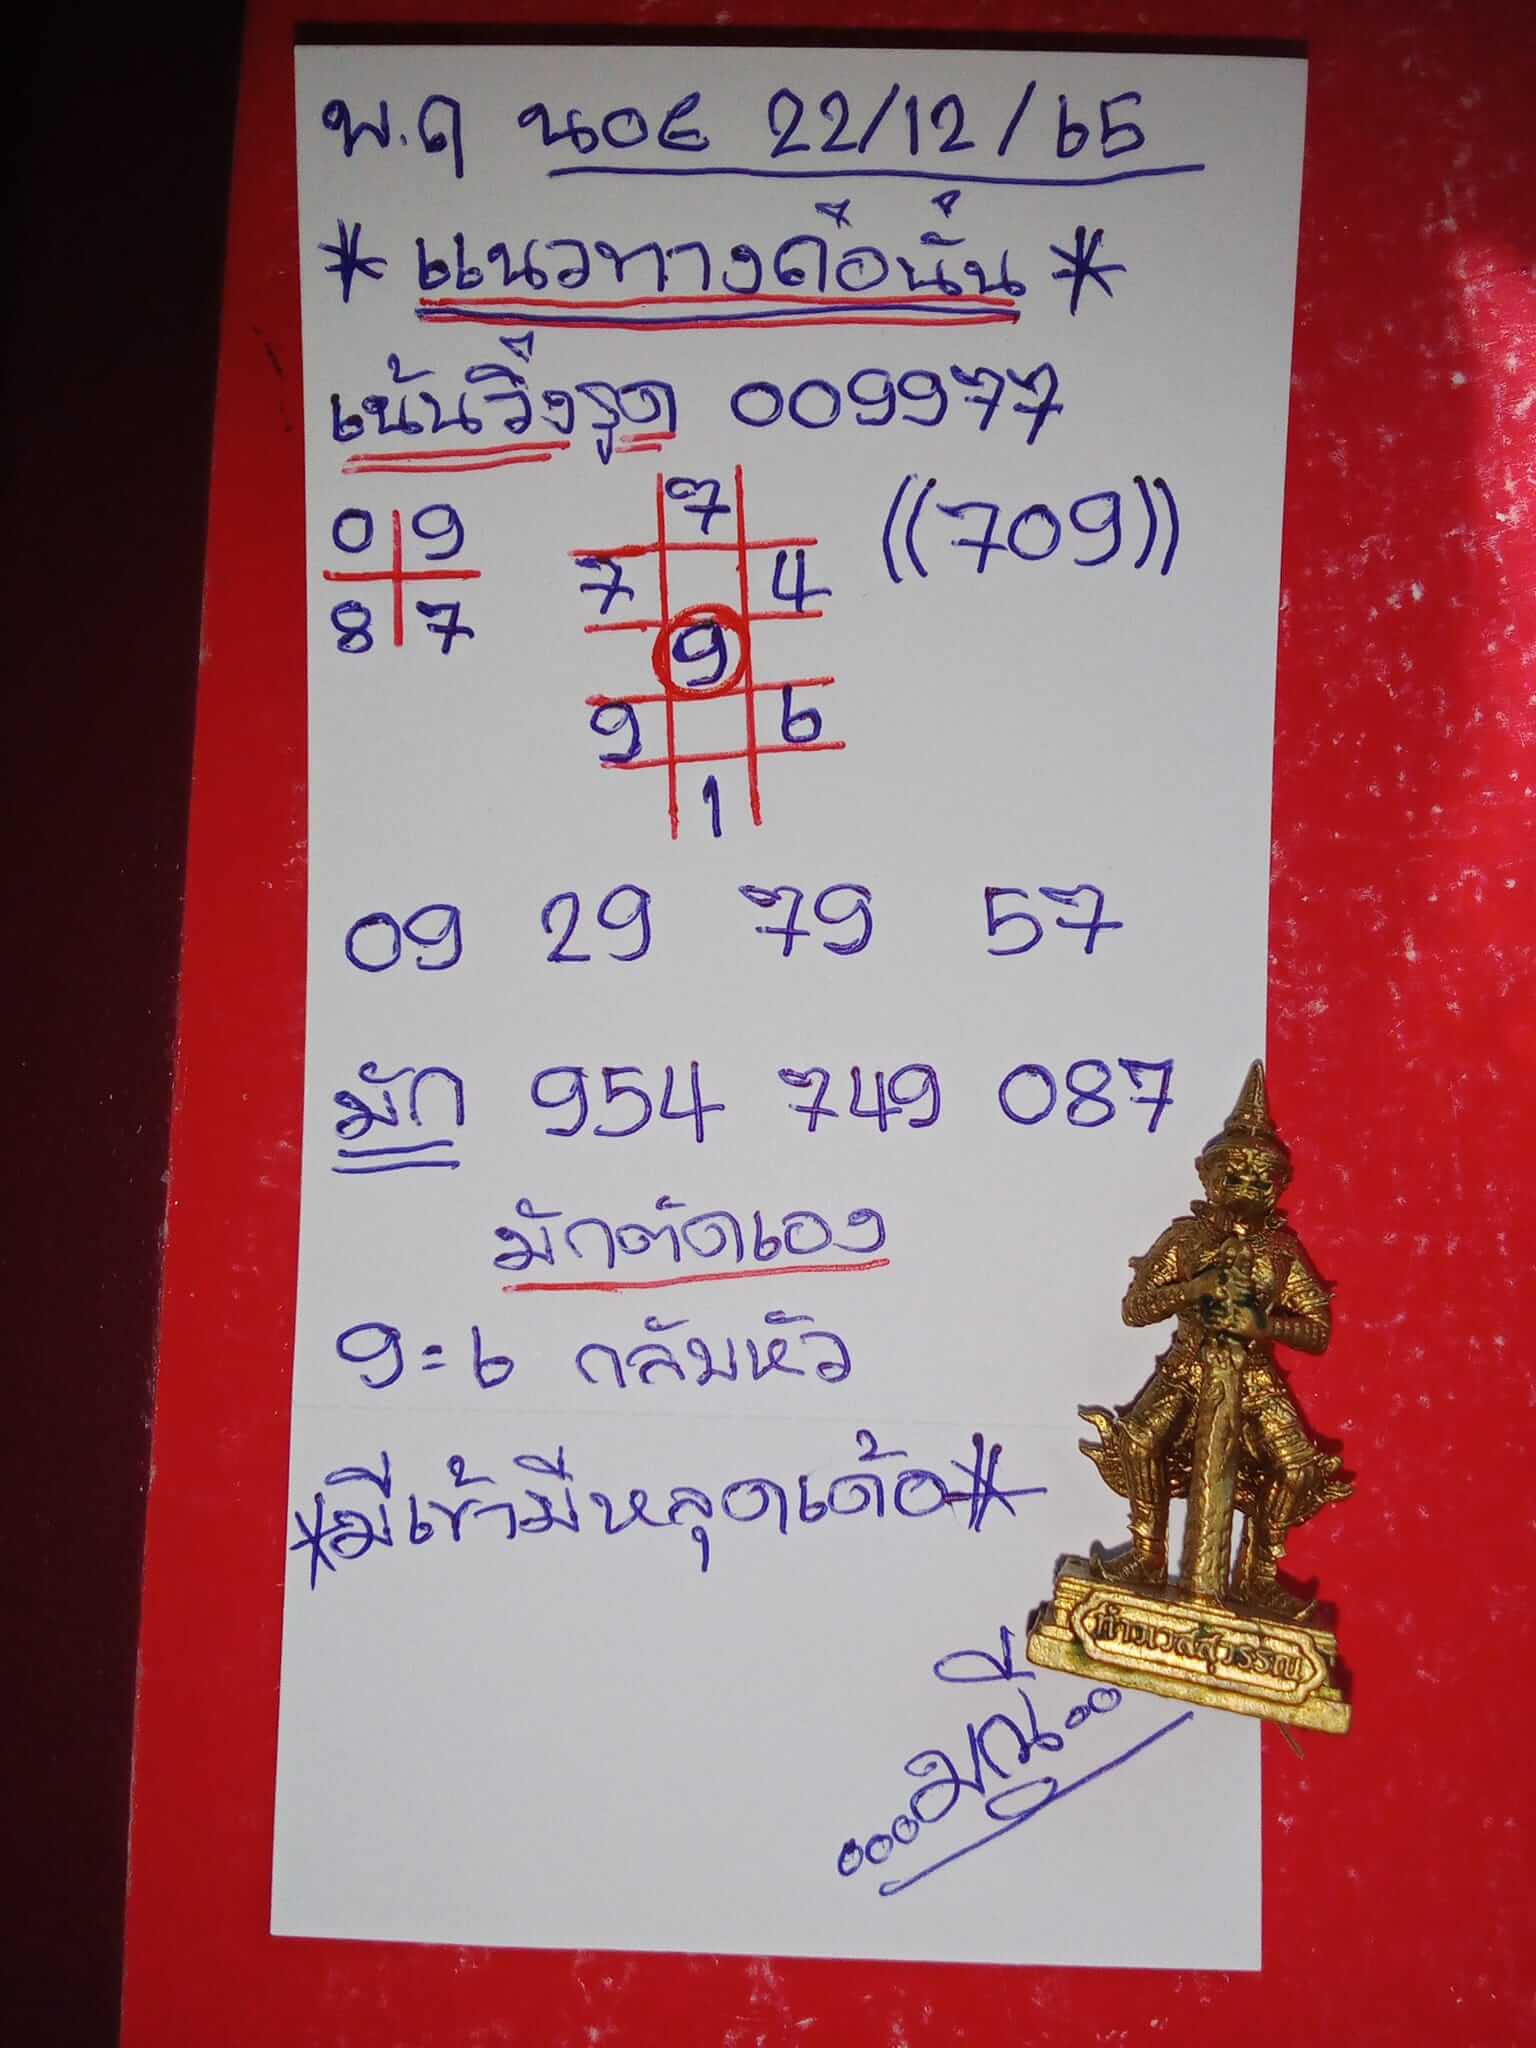 พ.ฤ นอย 22/12/65
* แนวทางคือนั้น *
เน้นวิ่งรูด 009977
0 9
8 7
7
7 4
9
9 6
1
((709))
09 29 79 57
มัก 954 749 087
มักตัดเอง
9=6 กลับหัว
*มีเข้ามีหลุดเด้อ*
ท้าวเวสสุวรรณ
...มณี..